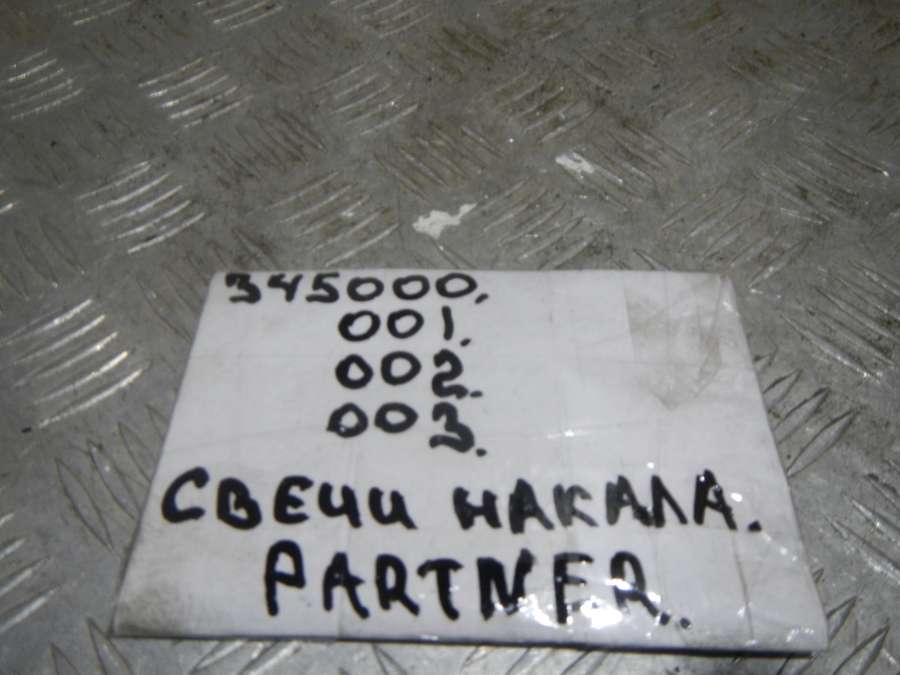 345000.
001.
002.
003.
СВЕЧИ НАКАЛА.
PARTNER.